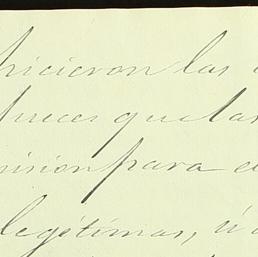 hicieron las
jueces que la
misión para e
legítimas, ú